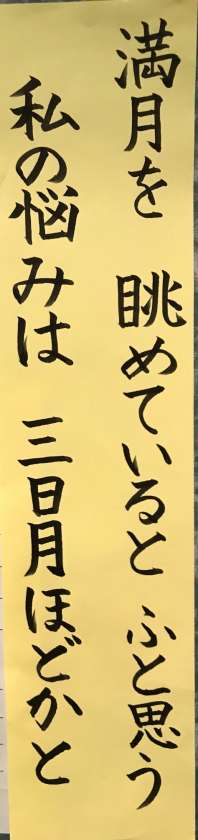 満月を 眺めていると ふと思う
私の悩みは 三日月ほどかと